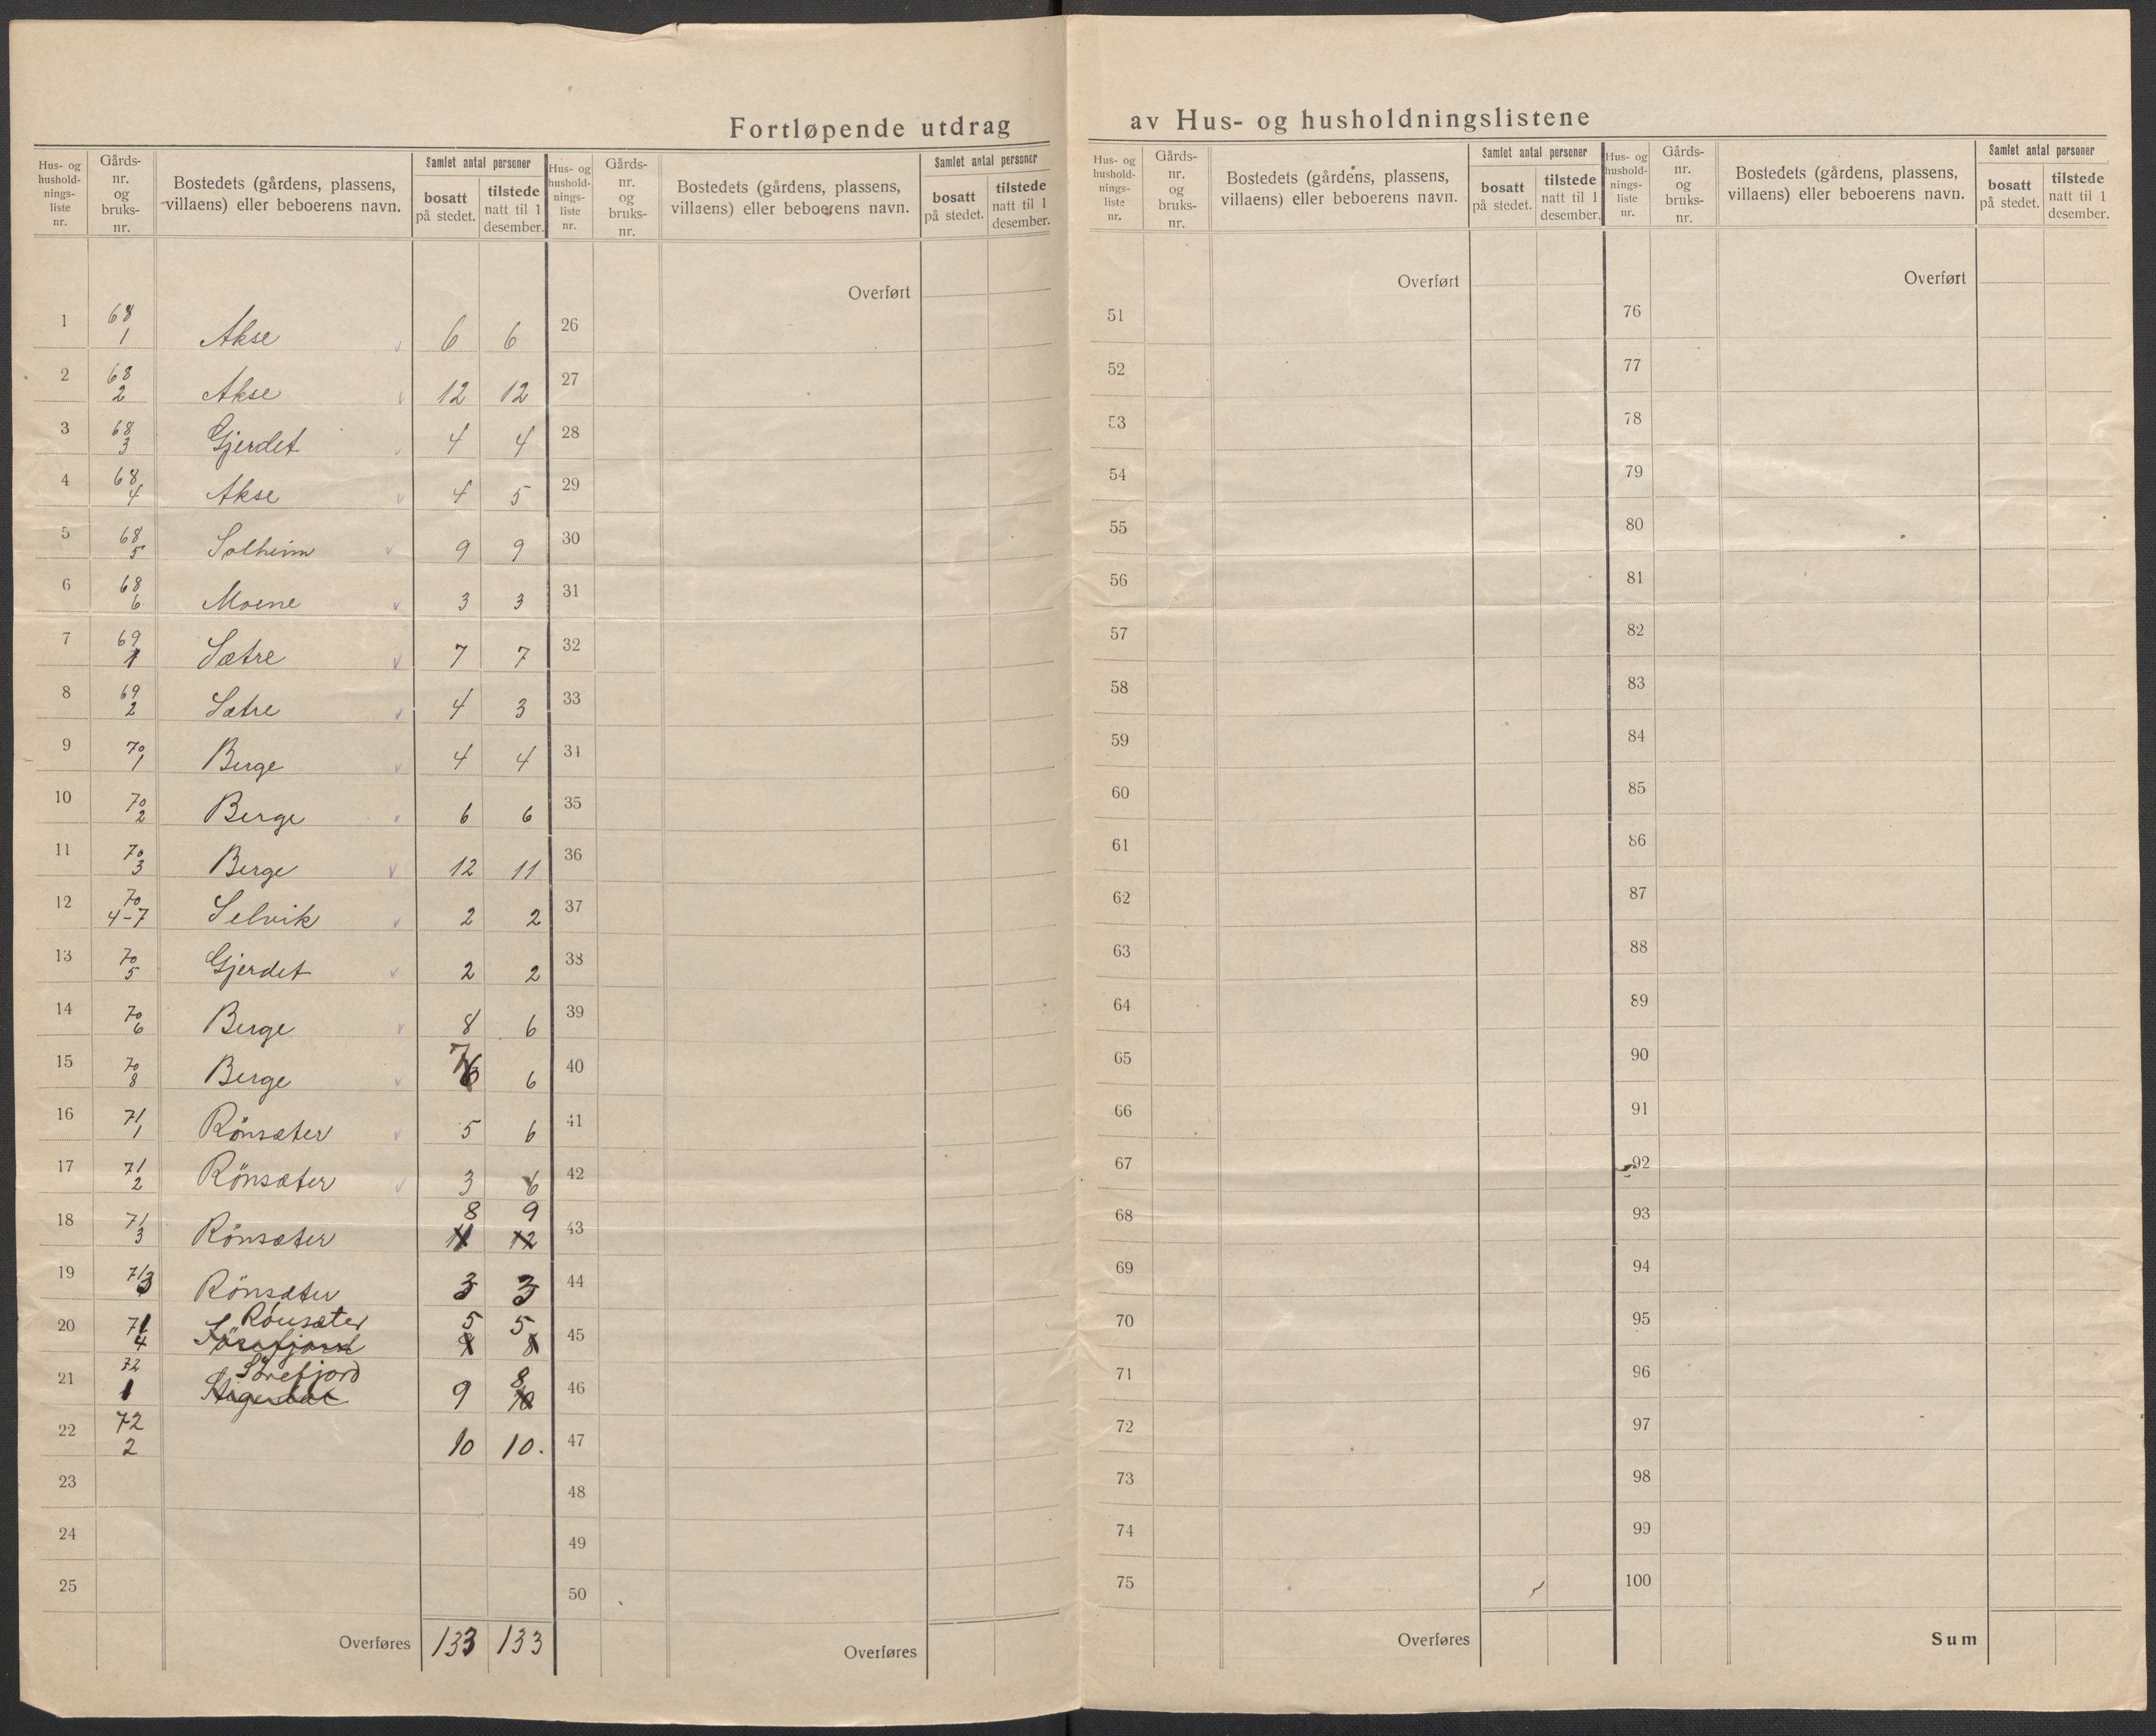 Fortløpende utdrag av Hus- og husholdningslistene
Hus- og hushold-nings-liste nr. Gårds-nr. og bruks-nr. Bostedets (gårdens, plassens, villaens) eller beboerens navn. Samlet antal personer bosatt på stedet. tilstede natt til 1 desember.
Hus- og hushold-nings-liste nr. Gårds-nr. og bruks-nr. Bostedets (gårdens, plassens, villaens) eller beboerens navn. Samlet antal personer bosatt på stedet. tilstede natt til 1 desember.
Hus- og hushold-nings-liste nr. Gårds-nr. og bruks-nr. Bostedets (gårdens, plassens, villaens) eller beboerens navn. Samlet antal personer bosatt på stedet. tilstede natt til 1 desember.
Hus- og hushold-nings-liste nr. Gårds-nr. og bruks-nr. Bostedets (gårdens, plassens, villaens) eller beboerens navn. Samlet antal personer bosatt på stedet. tilstede natt til 1 desember.
1 68 1 Akse 6 6
2 68 2 Akse 12 12
3 68 3 Gjerdet 4 4
4 68 4 Akse 4 5
5 68 5 Solheim 9 9
6 68 6 Moene 3 3
7 69 1 Sætre 7 7
8 69 2 Sætre 4 3
9 70 1 Berge 4 4
10 70 2 Berge 6 6
11 70 3 Berge 12 11
12 70 4-7 Selvik 2 2
13 70 5 Gjerdet 2 2
14 70 6 Berge 8 6
15 70 8 Berge 7 6 6
16 71 1 Rönsæter 5 6
17 71 2 Rönsæter 3 6
8 9
18 71 3 Rönsæter 11 12
19 71 3 Rönsæter 3 3
Rönsæter 5 5
20 71 4 Sörefjord 9 8
72 Sörefjord 8
21 1 9 10
22 72 2 10 10.
23
24
25
Overføres 133 133
Overført
26
27
28
29
30
31
32
33
34
35
36
37
38
39
40
41
42
43
44
45
46
47
48
49
50
Overføres
Overført
51
52
53
54
55
56
57
58
59
60
61
62
63
64
65
66
67
68
69
70
71
72
73
74
75
Overføres
Overført
76
77
78
79
80
81
82
83
84
85
86
87
88
89
90
91
92
93
94
95
96
97
98
99
100
Sum